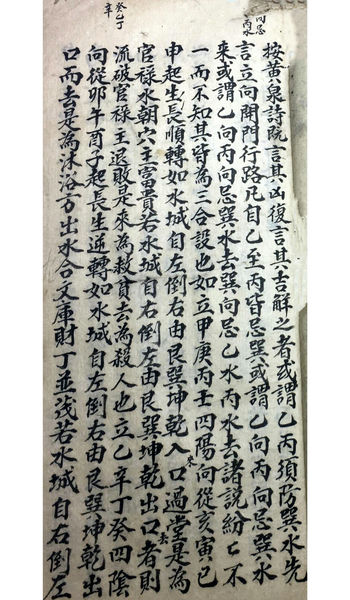 向忌
丙水
按黃泉詩既言其凶復言其吉解之者或謂乙丙須防巽水先
言立向開門行路凡自乙至丙皆忌巽或謂乙向丙向忌巽水
来或謂乙向丙向忌巽水去巽向忌乙水丙水去諸說紛々不
一而不知其皆為三合設也如立甲庚丙壬四陽向從亥寅巳
申起生長順轉如水城自左倒右由艮巽坤乾入口過堂是為
来
官祿水朝穴主富貴若水城自右倒左由艮巽坤乾出口者則
去
流破官祿主退敗是来為救貧去為殺人也立乙辛丁癸四陰
癸乙丁
辛
向從卯午酉子起長生逆轉如水城自左倒右由艮巽坤乾出
口而去是為沐浴方出水合文庫財丁並茂若水城自右倒左